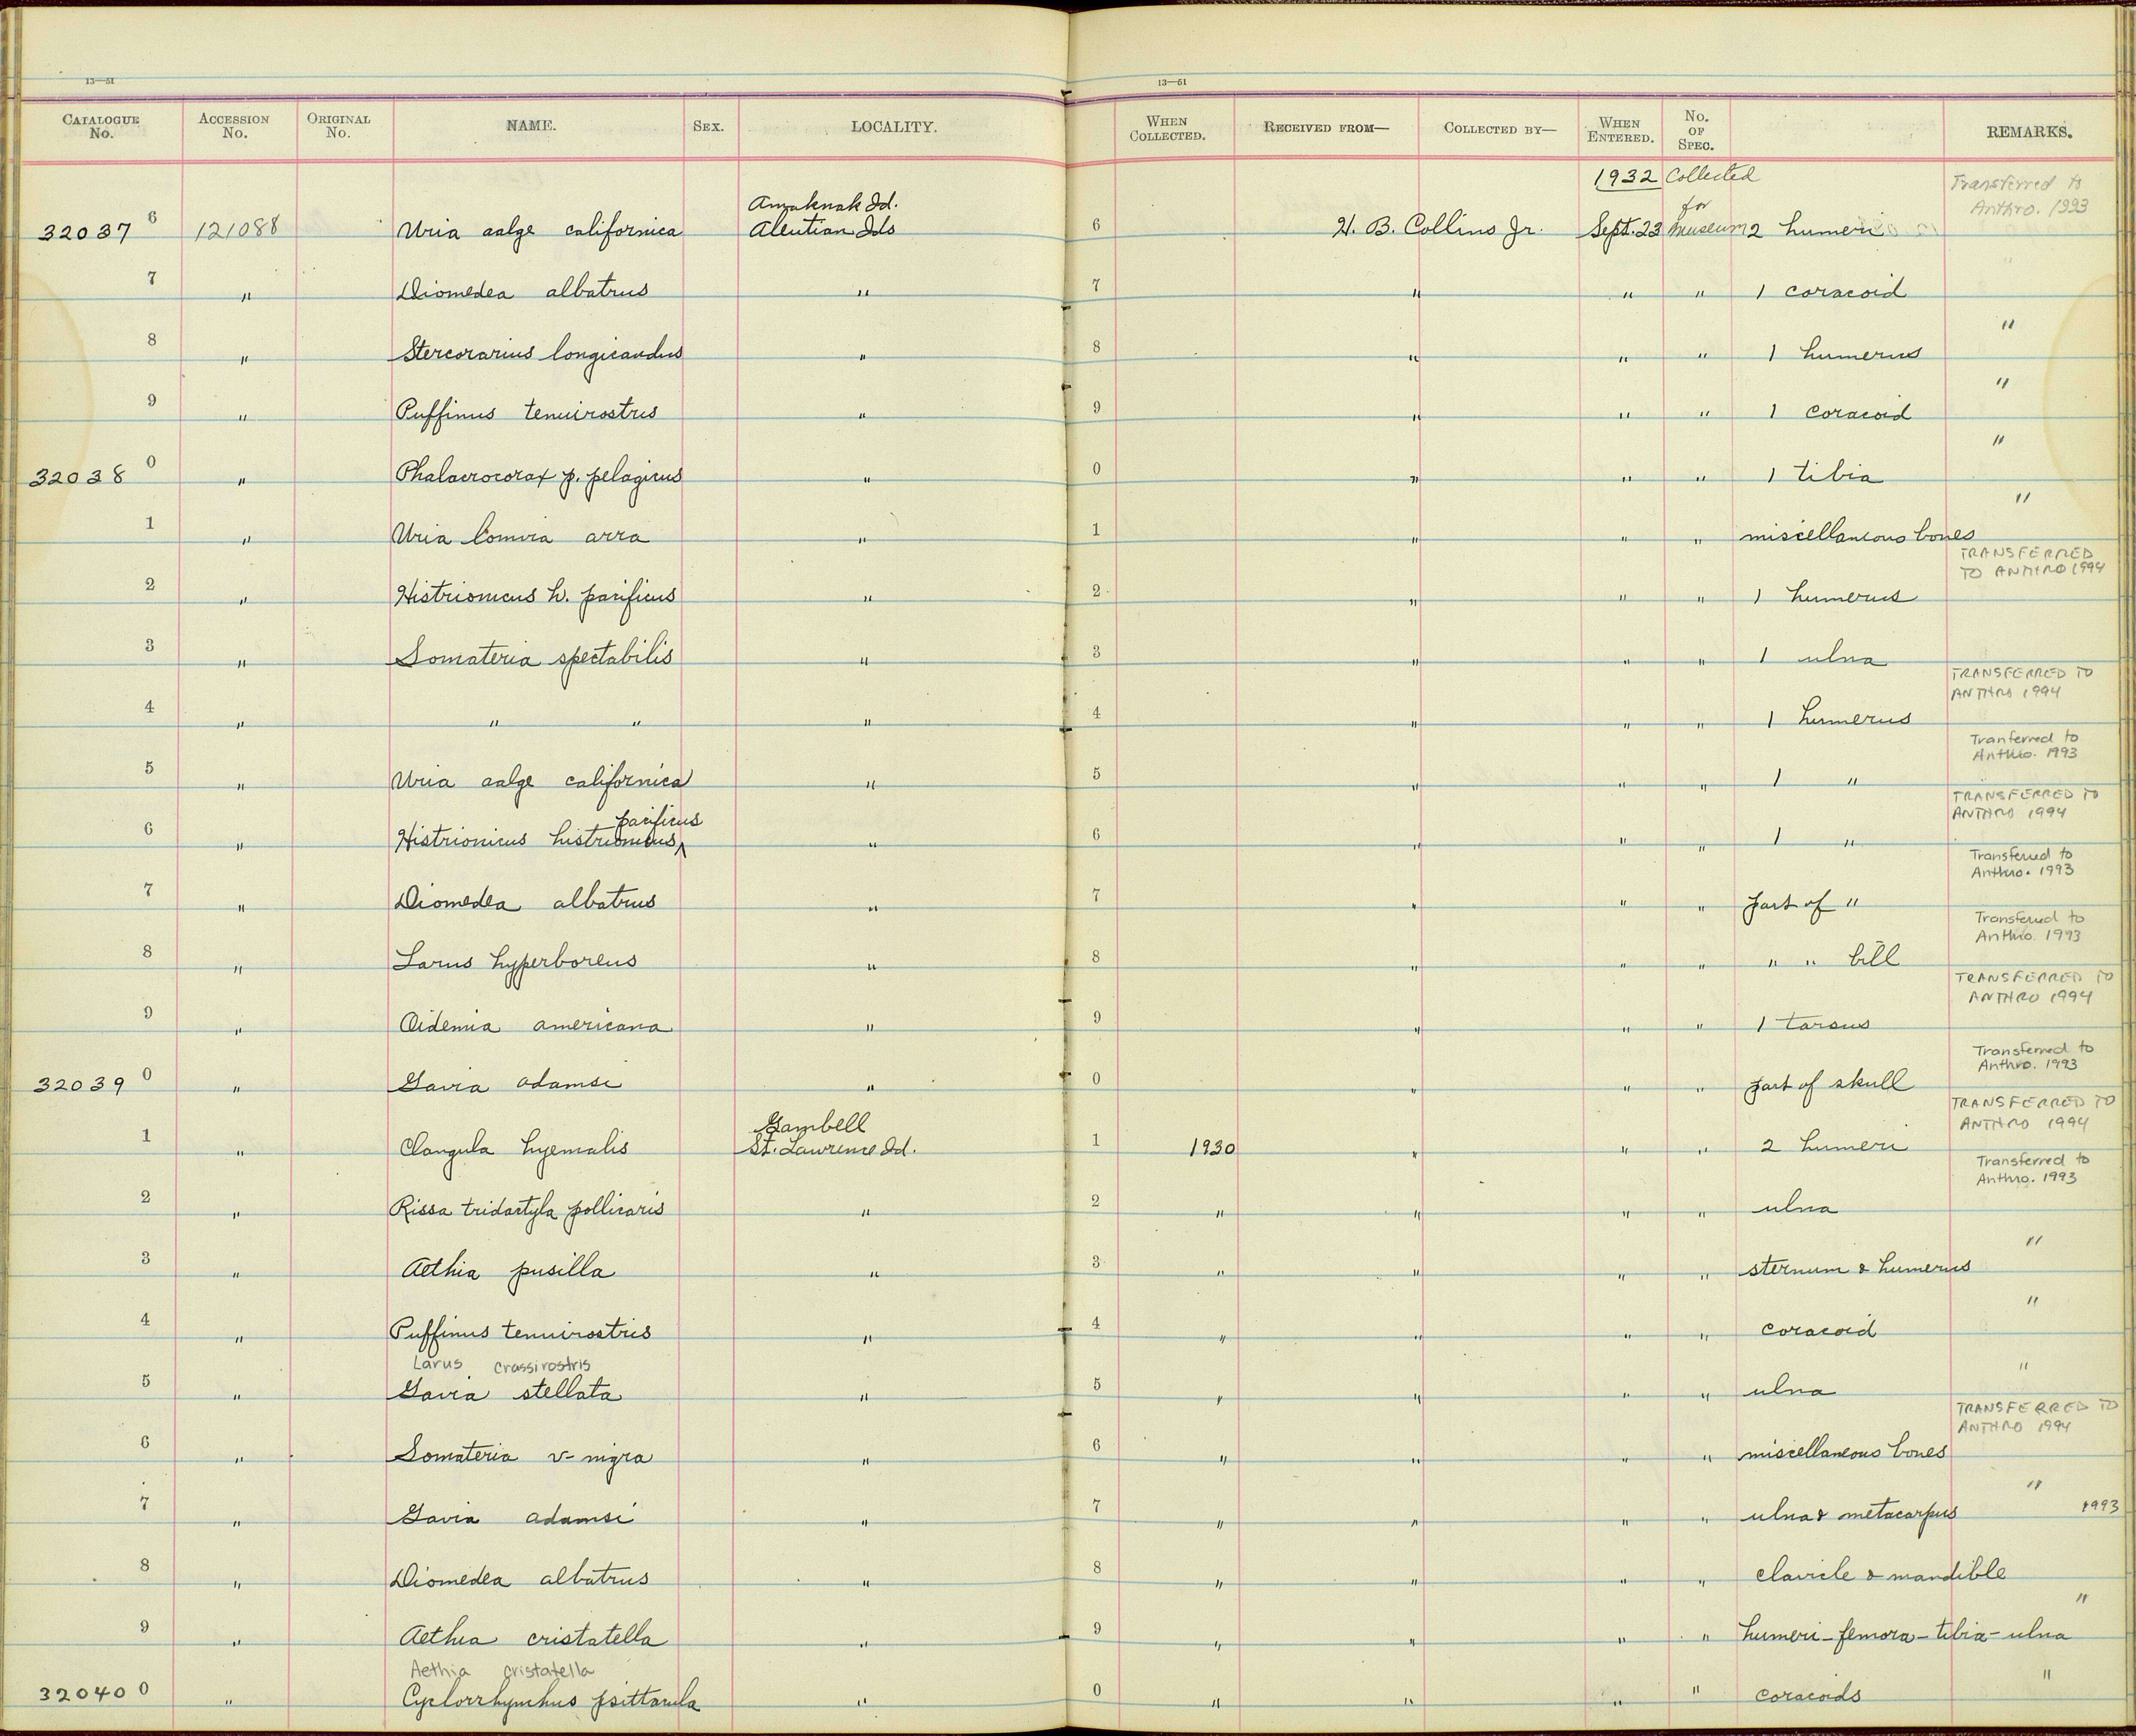 13—51 13—51
CATALOGUE No. ACCESSION No. ORIGINAL No. NAME. SEX. LOCALITY. WHEN COLLECTED. RECEIVED FROM— COLLECTED BY— WHEN ENTERED. No. OF SPEC. REMARKS.
1932 Collected Transferred to
Amaknak Id. for Anthro. 1993
32037 6 121088 Uria aalge californica Aleutian Ids 6 H. B. Collins Jr. Sept. 23 Museum 2 humeri
7 " Diomedea albatrus " 7 " " " 1 coracoid "
8 " Stercorarius longicaudus " 8 " " " 1 humerus "
9 " Puffinus tenuirostris " 9 " " " 1 coracoid "
32038 0 " Phalacrocorax p. pelagicus " 0 " " " 1 tibia "
1 " Uria lomvia arra " 1 " " " miscellaneous bones
TRANSFERRED
TO ANTHRO 1994
2 " Histrionicus h. pacificus " 2 " " " 1 humerus
3 " Somateria spectabilis " 3 " " " 1 ulna
TRANSFERRED TO
ANTHRO 1994
4 " " " " 4 " " " 1 humerus
Tranferred to
Anthro. 1993
5 " Uria aalge californica " 5 " " " 1 "
TRANSFERRED TO
ANTHRO 1994
pacificus
6 " Histrionicus histrionicus^ " 6 " " " 1 "
Transferred to
Anthro. 1993
7 " Diomedea albatrus " 7 " " " part of "
Transferred to
Anthro. 1993
8 " Larus hyperboreus " 8 " " " " " bill
TRANSFERRED TO
ANTHRO 1994
9 " Oidemia americana " 9 " " " 1 tarsus
Transferred to
Anthro. 1993
32039 0 " Gavia adamsi " 0 " " " part of skull
TRANSFERRED TO
ANTHRO 1994
Gambell
1 " Clangula hyemalis St. Lawrence Id. 1 1930 " " " 2 humeri
Transferred to
Anthro. 1993
2 " Rissa tridactyla pollicaris " 2 " " " " ulna
3 " Aethia pusilla " 3 " " " " sternum & humerus "
4 " Puffinus tenuirostris " 4 " " " " coracoid "
Larus crassirostris
5 " Gavia stellata " 5 " " " " ulna "
TRANSFERRED TO
ANTHRO 1994
6 " Somateria v-nigra " 6 " " " " miscellaneous bones
7 " Gavia adamsi " 7 " " " " ulna & metacarpus " 1993
8 " Diomedea albatrus " 8 " " " " clavicle & mandible
9 " Aethia cristatella " 9 " " " " humeri - femora - tibia - ulna "
Aethia cristatella
32040 0 " Cyclorrhynchus psittacula " 0 " " " " coracoids "